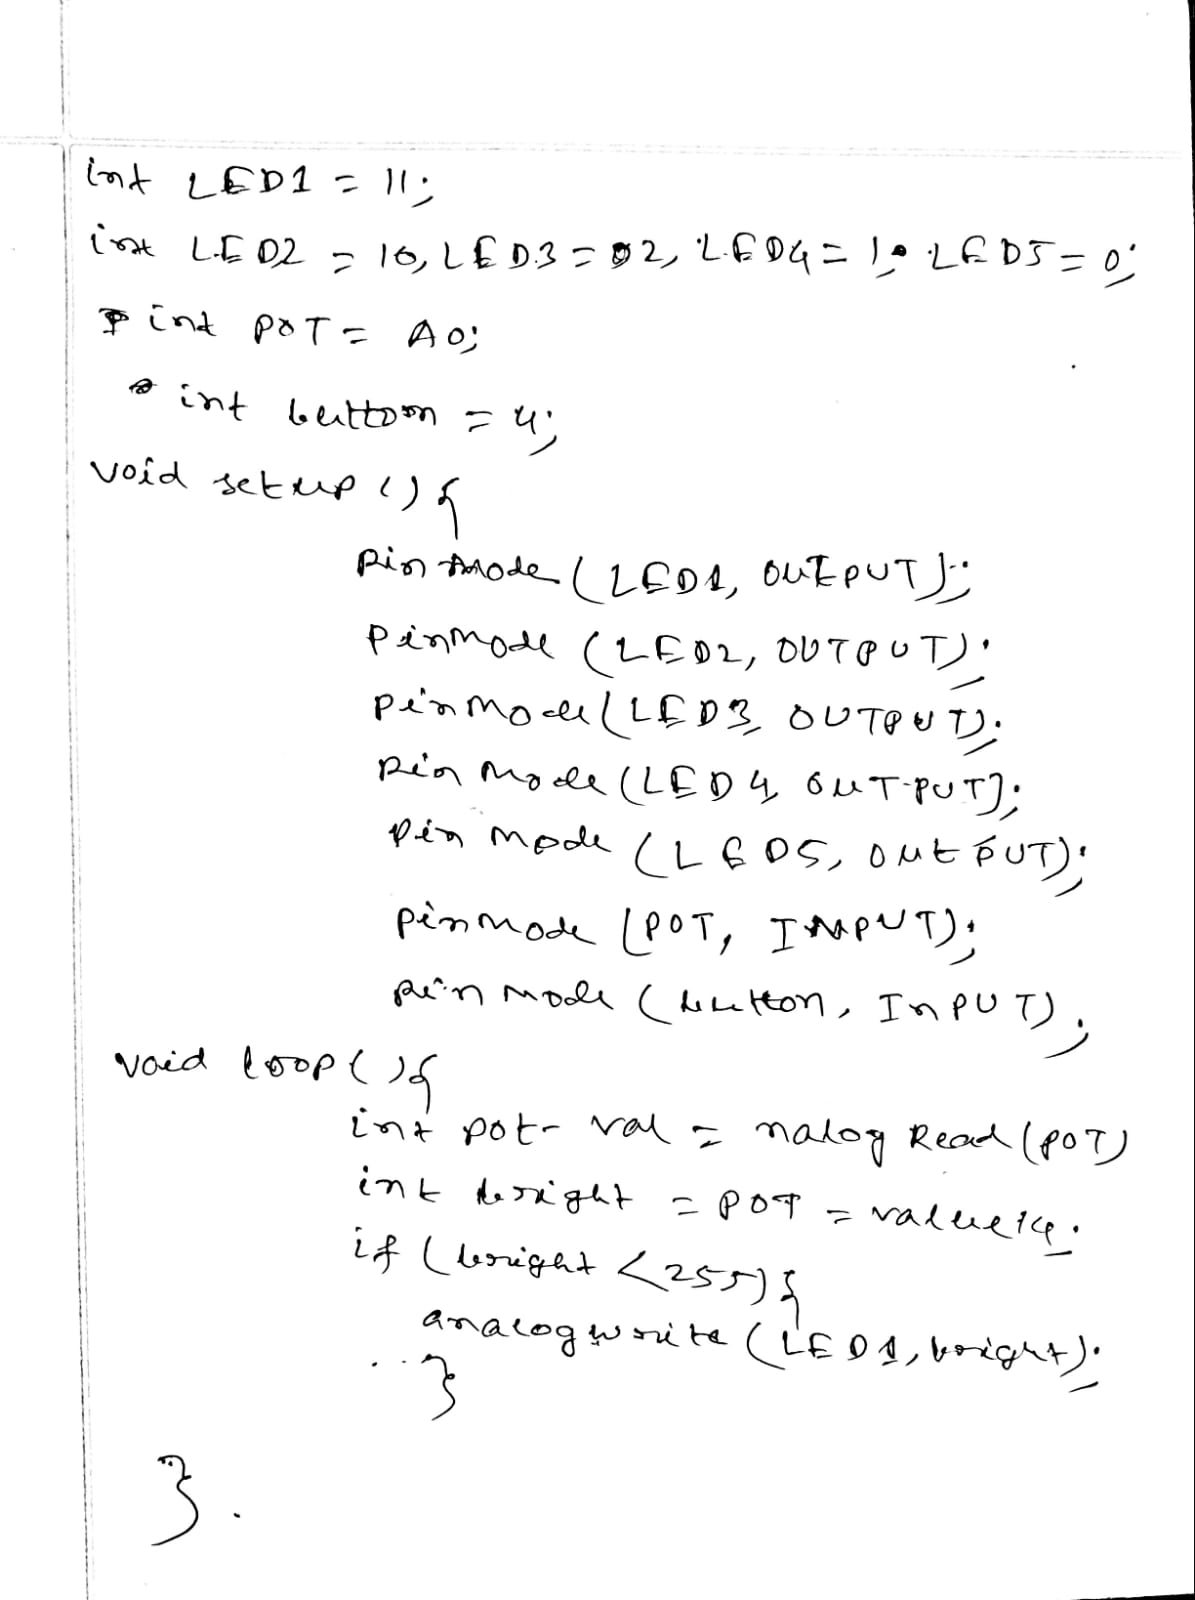 int LED1 = 11;
int LED2 = 10, LED3 = 2, LED4 = 1, LED5 = 0;
int POT = A0;
int button = 4;
void setup () {
pinMode (LED1, OUTPUT);
pinMode (LED2, OUTPUT);
pinMode (LED3, OUTPUT);
pinMode (LED4, OUTPUT);
pinMode (LED5, OUTPUT);
pinMode (POT, INPUT);
pinMode (button, INPUT);
void loop () {
int pot- val = nalog Read (POT)
int bright = POT = value/4;
if (bright < 255) {
analogwrite (LED1, bright);
}
}.